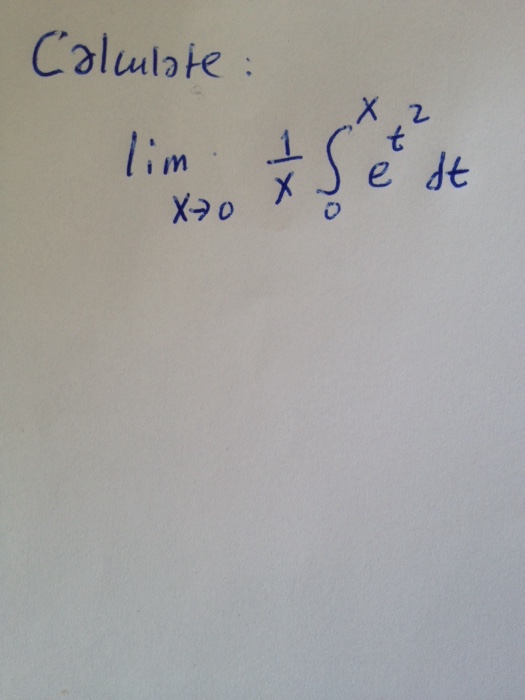 Calculate:
lim x→0 1/x ∫₀ˣ e^t² dt